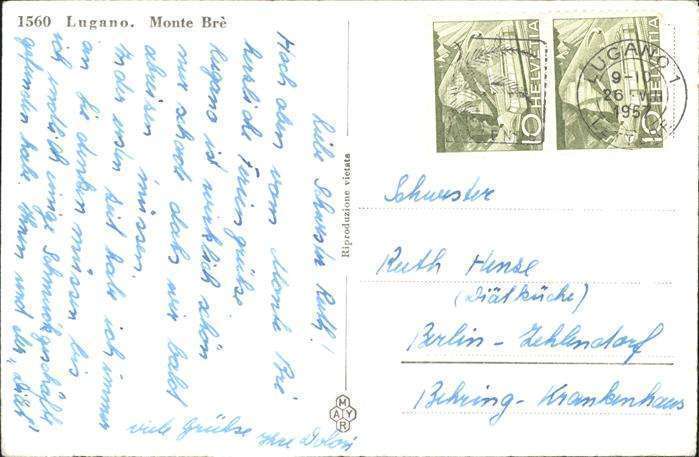 1560 Lugano. Monte Brè
Liebe Schwester Ruth!
Hoch oben vom Monte Brè
herzliche Feriengrüße.
Lugano ist wirklich schön
nur schade daß wir bald
abreisen müssen.
In der ersten Zeit habe ich immer
an Sie denken müssen bis
ich endlich einige Schmuckgeschäfte
gefunden habe. Ihnen und der "Diät"
viele Grüße Ihre Dolori
Riproduzione vietata
MAYR
HELVETIA
10
HELVETIA
10
LUGANO 1
26. VIII
1957
Schwester
Ruth Hense
(Diätküche)
Berlin-Zehlendorf
Behring-Krankenhaus